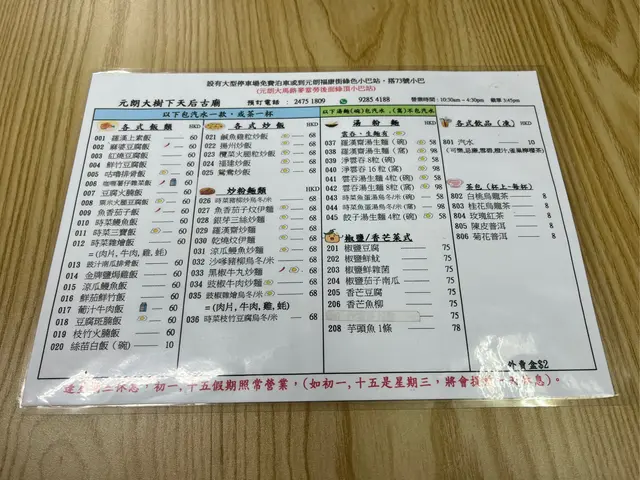 設有大型停車場免費泊車或到元朗福康街綠色小巴站，搭73號小巴
(元朗大馬路麥當勞後面綠頂小巴站)
元朗大樹下天后古廟 預訂電話： 2475 1809 9285 4188 營業時間：10:30am - 4:30pm
以下包汽水一款，或茶一杯
以下湯麵(碗)包汽水，(窩)不包汽水
各式飯類 HKD
001 羅漢上素飯 60
002 麻婆豆腐飯 60
003 紅燒豆腐飯 60
004 鮮竹豆腐飯 60
005 咕嚕排骨飯 60
006 咖喱薯仔雜菜飯 60
007 豆腐火腩飯 60
008 粟米火腿豆腐飯 60
009 魚香茄子飯 60
010 時菜鰻魚飯 60
011 時菜三寶飯 60
012 時菜雜燴飯 60
=(肉片,牛肉,雞,蚝)
013 豉汁南瓜排骨飯 60
014 金牌鹽焗雞飯 60
015 涼瓜鰻魚飯 60
016 鮮茄鮮竹飯 60
017 葡汁牛肉飯 60
018 豆腐斑腩飯 60
019 枝竹火腩飯 60
020 絲苗白飯 (碗) 10
各式炒飯 HKD
021 鹹魚雞粒炒飯 68
022 揚州炒飯 68
023 欖菜火腿粒炒飯 68
024 福建炒飯 68
025 鴛鴦炒飯 68
炒粉麵類 HKD
026 時菜豬柳炒烏冬/米 68
027 魚香茄子炆伊麵 68
028 銀芽三絲炒麵 68
029 羅漢齋炒麵 68
030 乾燒炆伊麵 68
031 涼瓜鰻魚炒麵 68
032 沙嗲豬柳烏冬/米 68
033 黑椒牛丸炒麵 68
034 豉椒牛肉炒烏冬/米 68
035 豉椒雜燴烏冬/米 68
=(肉片,牛肉,雞,蚝)
036 時菜枝竹豆腐烏冬/米 68
湯粉麵 HKD
雲吞、生麵有
037 羅漢齋湯麵 (碗) 58
038 羅漢齋湯麵 (窩) 98
039 淨雲吞 8粒 (碗) 58
040 淨雲吞 16粒 (窩) 98
041 雲吞湯生麵 4粒 (碗) 58
042 雲吞湯生麵 8粒 (窩) 98
043 時菜魚蛋湯烏冬/米(碗) 58
044 時菜魚蛋湯烏冬/米(窩) 98
045 餃子湯生麵 4粒 (碗) 58
椒鹽/香芒菜式
201 椒鹽豆腐 75
202 椒鹽鮮魷 75
203 椒鹽鮮雜菌 75
204 椒鹽茄子南瓜 75
205 香芒豆腐 75
206 香芒魚柳 75
75
208 芋頭魚 1條 78
各式飲品 (凍) HKD
801 汽水 10
茶包 (杯上-每杯)
802 白桃烏龍茶 8
803 桂花烏龍茶 8
804 玫瑰紅茶 8
805 陳皮普洱 8
806 菊花普洱 8
外賣盒$2
休息，初一，十五假期照常營業，(如初一，十五是星期三，將會